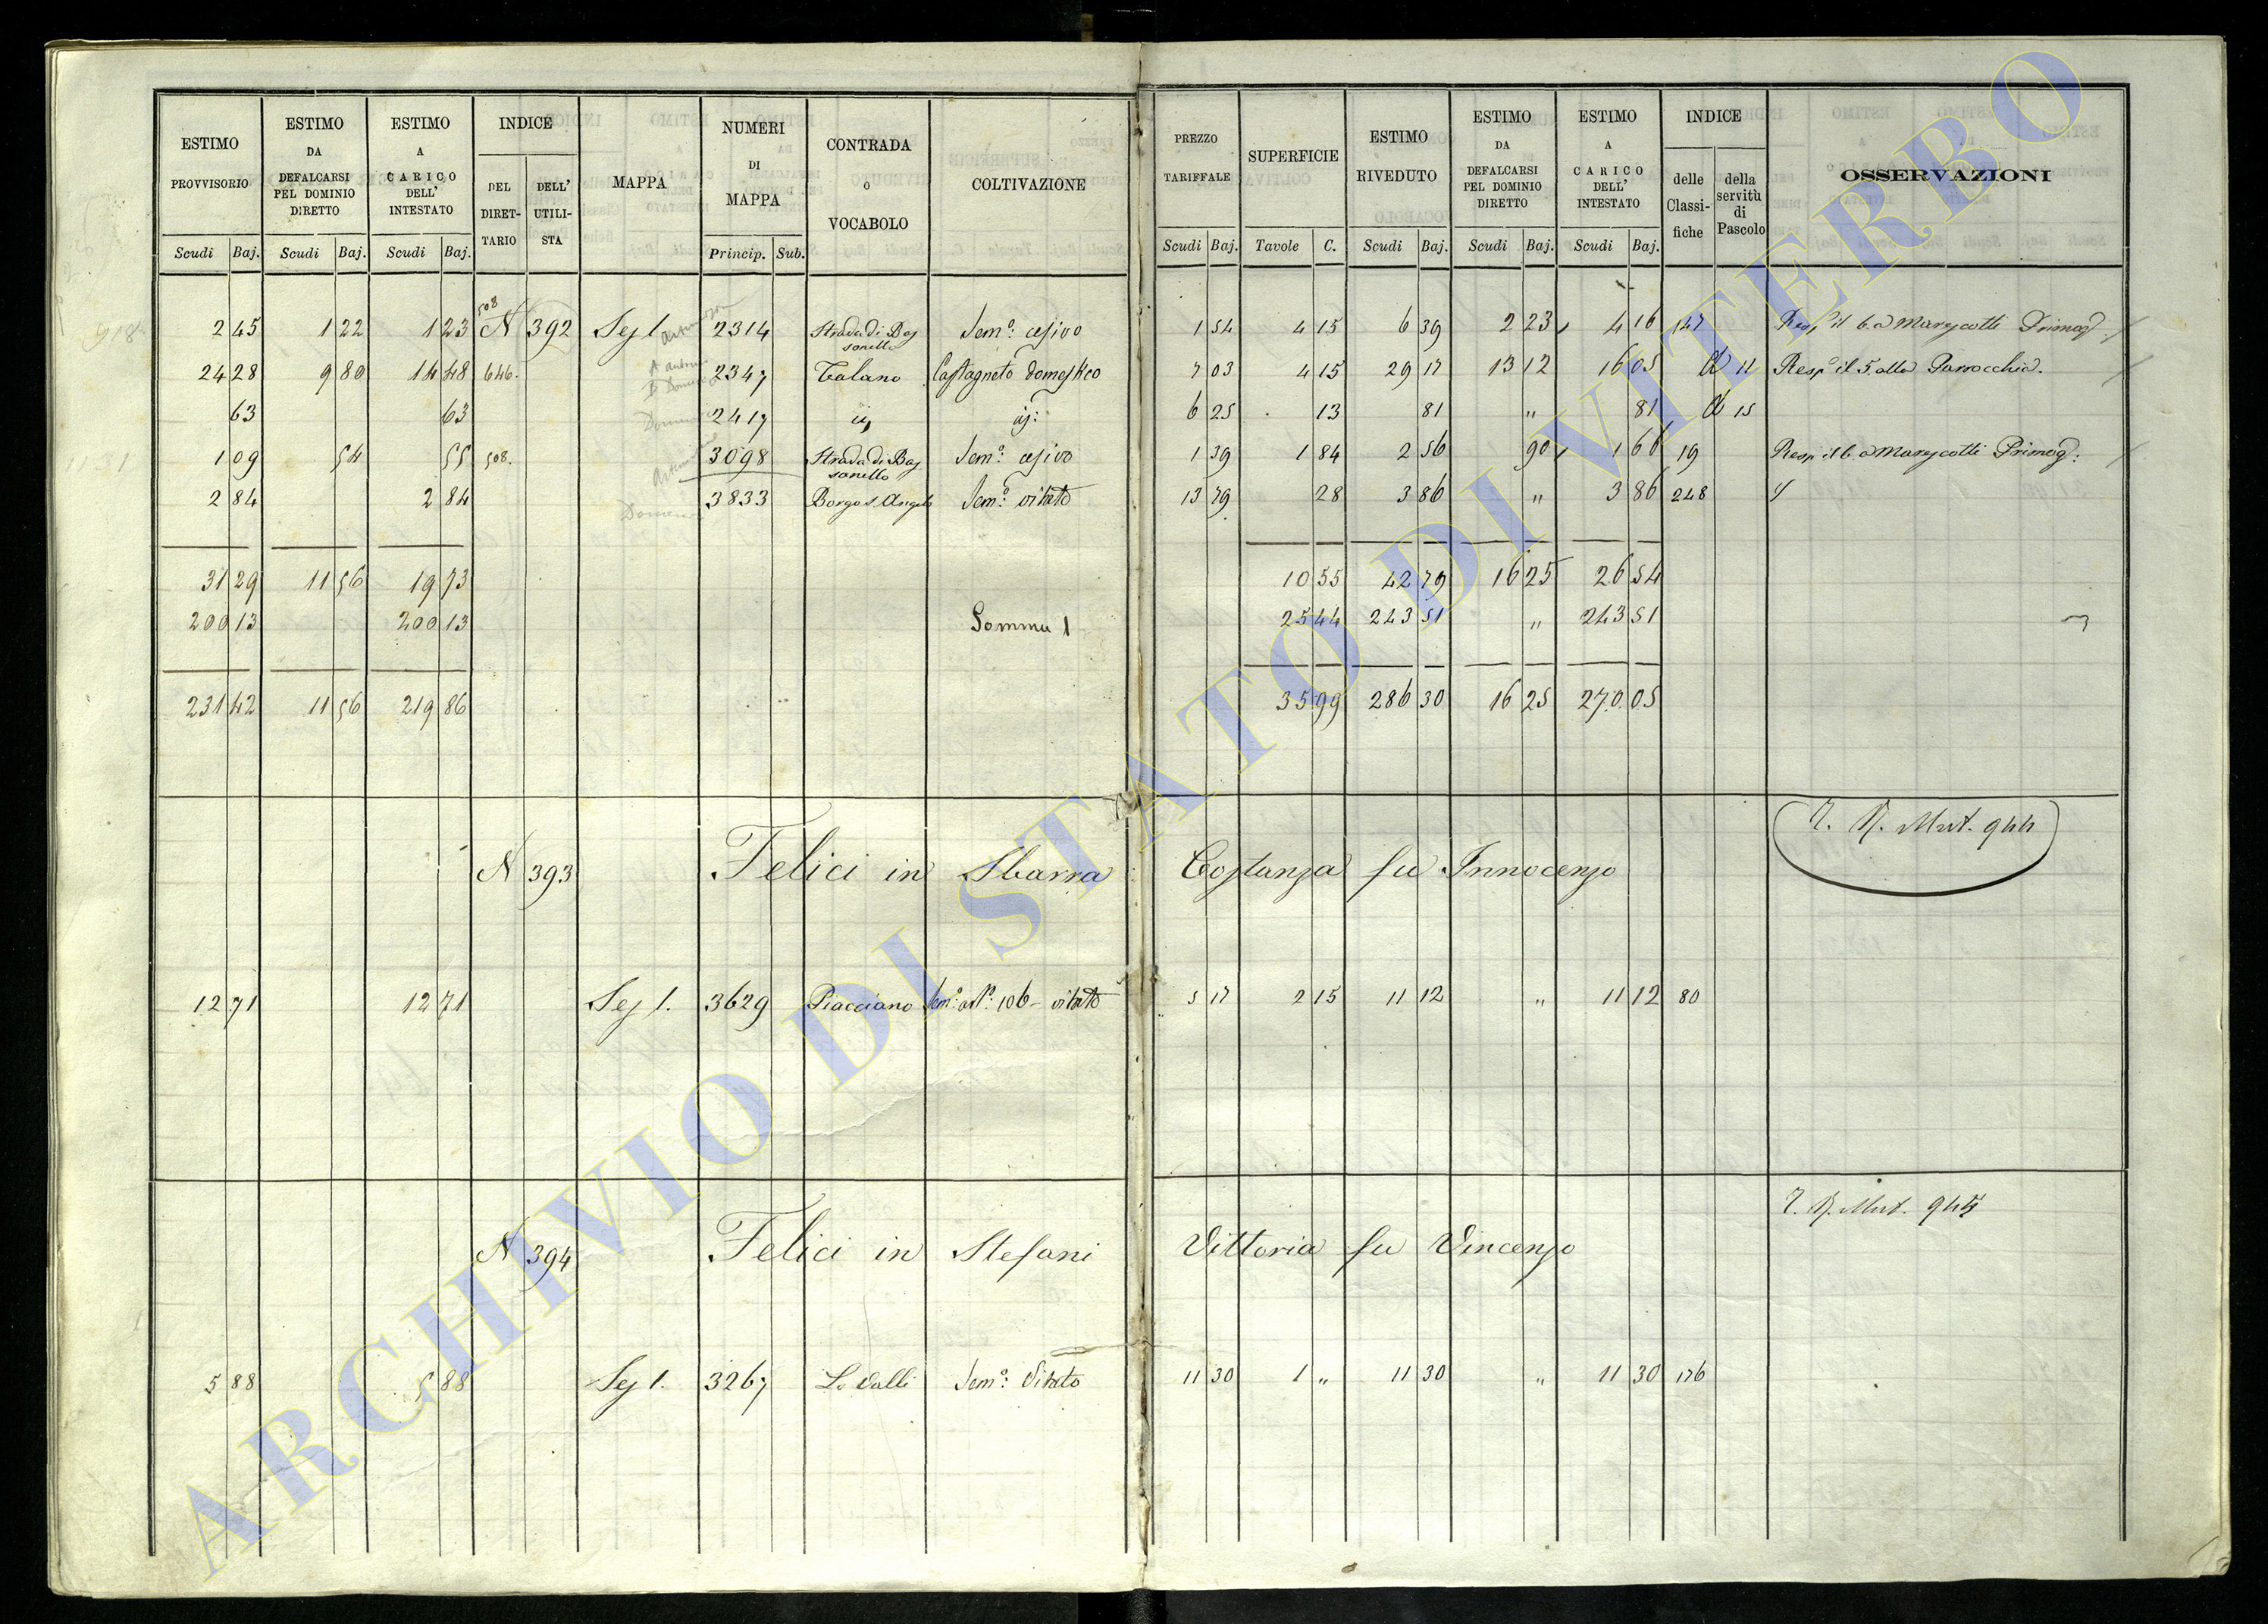 ESTIMO PROVVISORIO Scudi Baj. ESTIMO DA DEFALCARSI PEL DOMINIO DIRETTO Scudi Baj. ESTIMO A CARICO DELL' INTESTATO Scudi Baj. INDICE DEL DIRETTARIO DELL' UTILISTA MAPPA NUMERI DI MAPPA Princip. Sub. CONTRADA O VOCABOLO COLTIVAZIONE PREZZO TARIFFALE Scudi Baj. SUPERFICIE Tavole C. ESTIMO RIVEDUTO Scudi Baj. ESTIMO DA DEFALCARSI PEL DOMINIO DIRETTO Scudi Baj. ESTIMO A CARICO DELL' INTESTATO Scudi Baj. INDICE delle Classifiche della servitù di Pascolo OSSERVAZIONI
508
2 45 1 22 1 23 N 392 Sez 1. 2314 Strada di Bassanello Sem.º cesivo 1 54 4 15 6 39 2 23 4 16 147 Resp. il 6. a Marescotti Primog.
24 28 9 80 14 48 646. 2347 Talano Castagneto domestico 7 03 4 15 29 17 13 12 16 05 A 11 Resp. il 5. alla Parrocchia.
63 63 2417 ij ij: 6 25 13 81 " 81 A 15
1 09 54 55 508. 3098 Strada di Bassanello Sem.º cesivo 1 39 1 84 2 56 90 1 66 19 Resp. il 6. a Marescotti Primog:
2 84 2 84 3833 Borgo S. Angelo Sem.º vitato 13 79 28 3 86 " 3 86 248
31 29 11 56 19 73 10 55 42 79 16 25 26 54
200 13 200 13 Somma 1 25 44 243 51 " 243 51
231 42 11 56 219 86 35 99 286 30 16 25 270 05
N 393 Felici in Sbarra Costanza fu Innocenzo Mut. 944
12 71 12 71 Sez 1. 3629 Piacciano Sem.º art.º 106 - vitato 5 17 2 15 11 12 " 11 12 80
N 394 Felici in Stefani Vittoria fu Vincenzo Mut. 945
5 88 5 88 Sez 1. 3267 Le Valli Sem.º Vitato 11 30 1 " 11 30 " 11 30 176
ARCHIVIO DI STATO DI VITERBO